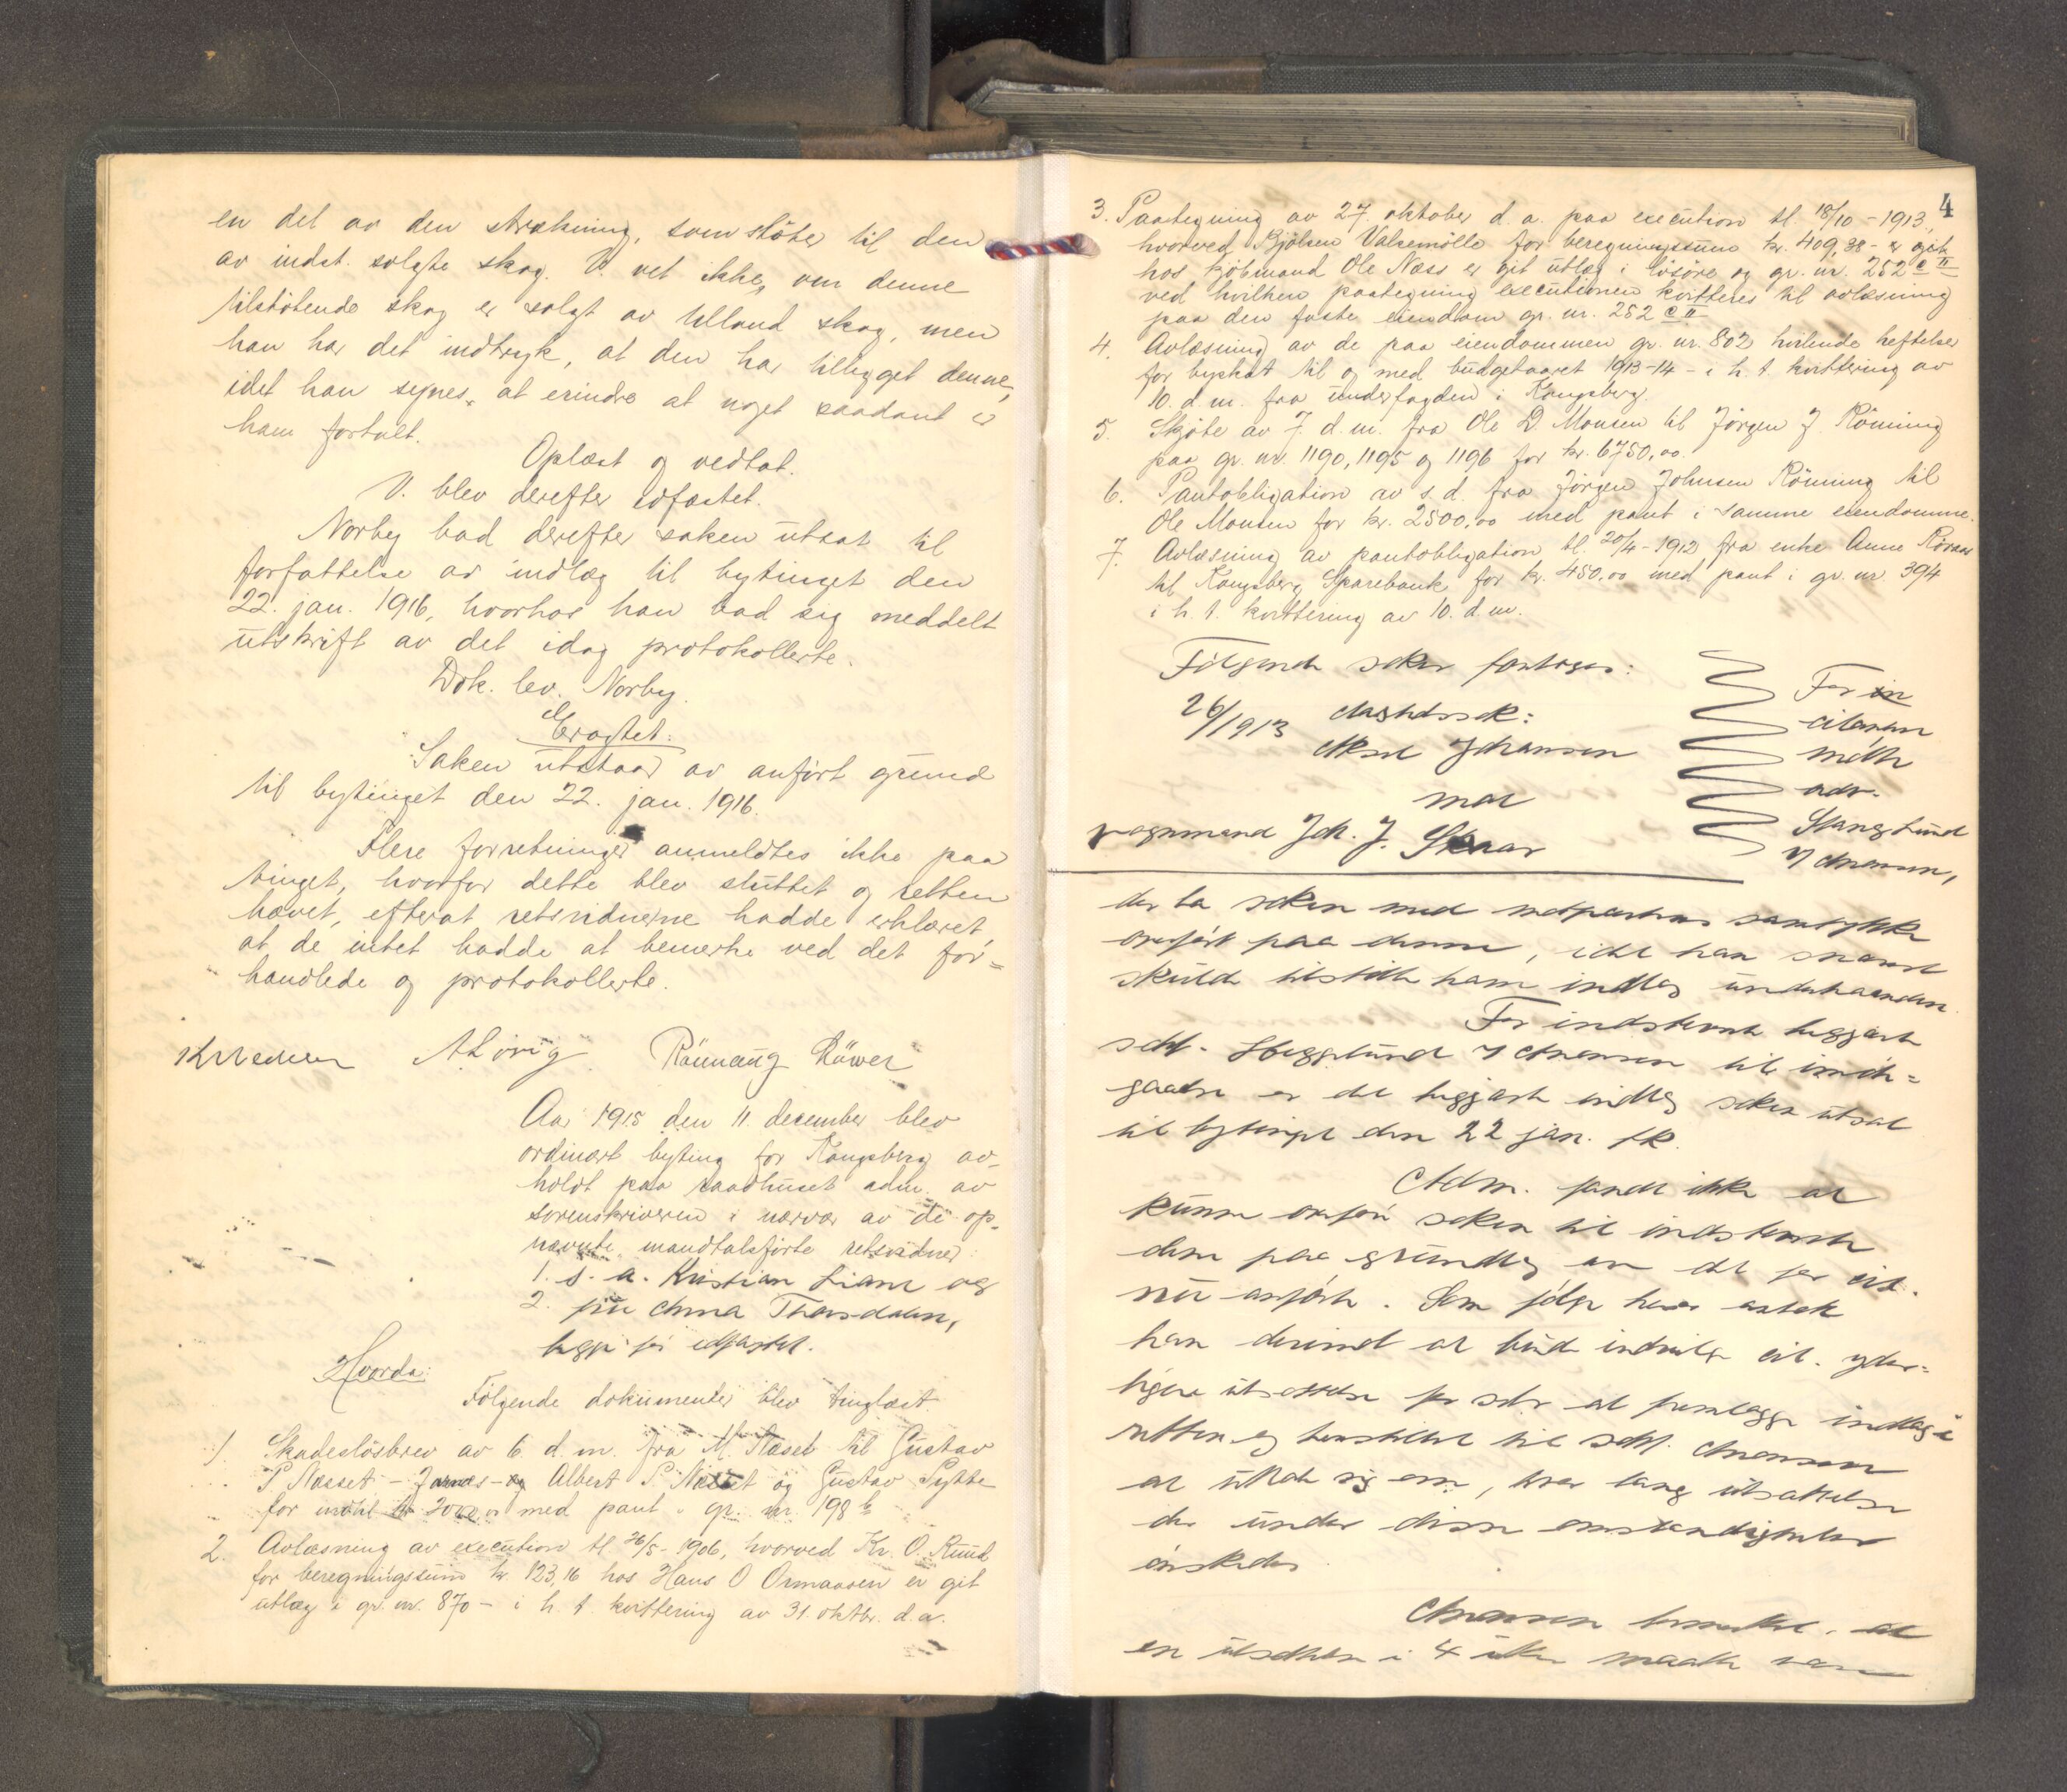 en del av den strækning, som støter til den
av indst. solgte skog. V. vet ikke, om denne
tilstøtende skog er solgt av Ulland skog, men
han har det indtryk, at den har tilligget denne,
idet han synes, at erindre at noget saadant er
ham fortalt.
Oplæst og vedtat.
V. blev derefter edfæstet.
Norby bad derefter saken utsat til
forfattelse av indlæg til bytinget den
22. jan. 1916, hvorhos han bad sig meddelt
utskrift av det idag protokollerte.
Dok. lev. Norby.
Eragtet:
Saken utstaar av anført grund
til bytinget den 22. jan. 1916.
Flere forretninger anmeldtes ikke paa
tinget, hvorfor dette blev sluttet og retten
hævet, efterat retsvidnerne hadde erklæret
at de intet hadde at bemerke ved det for=
handlede og protokollerte.
Rönnaug Löwer
Aar 1915 den 11. december blev
ordinært byting for Kongsberg av-
holdt paa raadhuset adm. av
sorenskriveren i nærvær av de op-
nævnte mandtalsførte retsvidner:
1. s. a. Kristian Liane og
2. fru Anna Thorsdalen,
begge før edfæstet.
Hvorda:
Følgende dokumenter blev tinglæst.
1) Skadesløsbrev av 6. d. m. fra M. Næset til Gustav
P. Næsset - og Albert P. Næsset og Gustav Pytte
for indtil kr 2000,00 med pant i gr. nr. 198 b
2. Avlæsning av execution tl. 26/5-1906, hvorved Kr. O. Ruud
for beregningssum kr. 123,16 hos Hans O Ormaasen er git
utlæg i gr. nr. 870 - i h. t. kvittering av 31. oktbr. d. a.
4
3. Paategning av 27. oktober d. a. paa execution tl. 18/10-1913,
hvorved Bjølsen Valsemølle for beregningssum kr. 409,38 - er git
hos kjøbmand Ole Næss er git utlæg i løsøre og gr. nr. 252 c II
ved hvilken paategning executionen kvitteres til avlæsning
paa den faste eiendom gr. nr. 252 c II
4. Avlæsning av de paa eiendommen gr. nr. 802 hvilende heftelser
for byskat til og med budgetaaret 1913-14 - i h. t. kvittering av
10. d. m. fra underfogden i Kongsberg.
5. Skjøte av 7. d. m. fra Ole D. Monsen til Jørgen J. Rönning
paa gr. nr. 1190, 1195 og 1196 for kr. 6750,00.
6. Pantobligation av s. d. fra Jörgen Johnsen Rönning til
Ole Monsen for kr. 2500,00 med pant i samme eiendomme.
7. Avlæsning av pantobligation tl. 20/4-1912 fra enke Anne
til Kongsberg Sparebank for kr. 450,00 med pant i gr. nr. 394
i h. t. kvittering av 10. d. m.
Følgende saker foretoges:
26/1913
Johansen
mot
vognmand Joh. J. Skaar
For
citanten
møtte
adv.
Stanglund
der ba saken med motpartens samtykke
paa denne, idet han snarest
skulde tilstille ham indlæg underhaanden.
For indstevnte begjærte
til imøte=
gaaelse av det begjærte indlæg saken utsat
til bytinget den 22 jan. fk.
Adm. fandt ikke at
kunne saken til indstevnte
denne paa grundlag av det for cit.
nu anførte. Som følge herav
han derimot at burde indvilge cit. yder=
ligere utsættelse for selv at fremlægge indlæg i
retten og henstillet til
at uttale sig om, hvor lang utsættelse
der under disse omstændigheter
ønskedes.
bemerket, at
en utsættelse i 4 uker maatte være